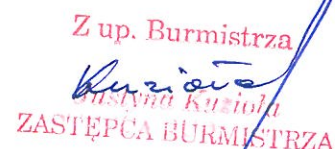 Z up. Burmistrza
Justyna Kuzioła
ZASTĘPCA BURMISTRZA